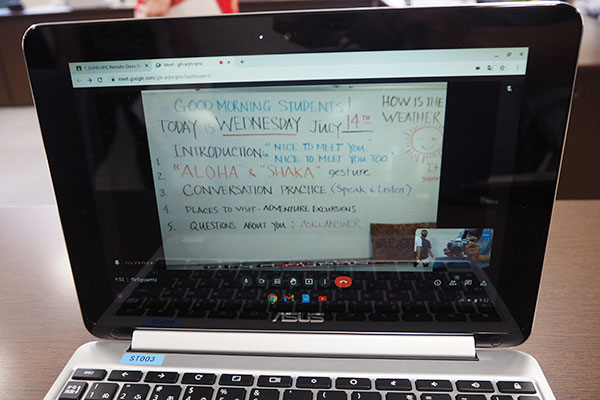 Meet
meet.google.com/
GOOD MORNING STUDENTS!
TODAY IS WEDNESDAY JULY 14TH
HOW IS THE WEATHER
1. INTRODUCTION: "NICE TO MEET YOU"
NICE TO MEET YOU TOO
2. "ALOHA" & "SHAKA" gesture
3. CONVERSATION PRACTICE (Speak & Listen)
4. PLACES TO VISIT - ADVENTURE EXCURSIONS
5. QUESTIONS ABOUT YOU: ASK & ANSWER
It
9:52
9:52
ASUS
ST003
esc